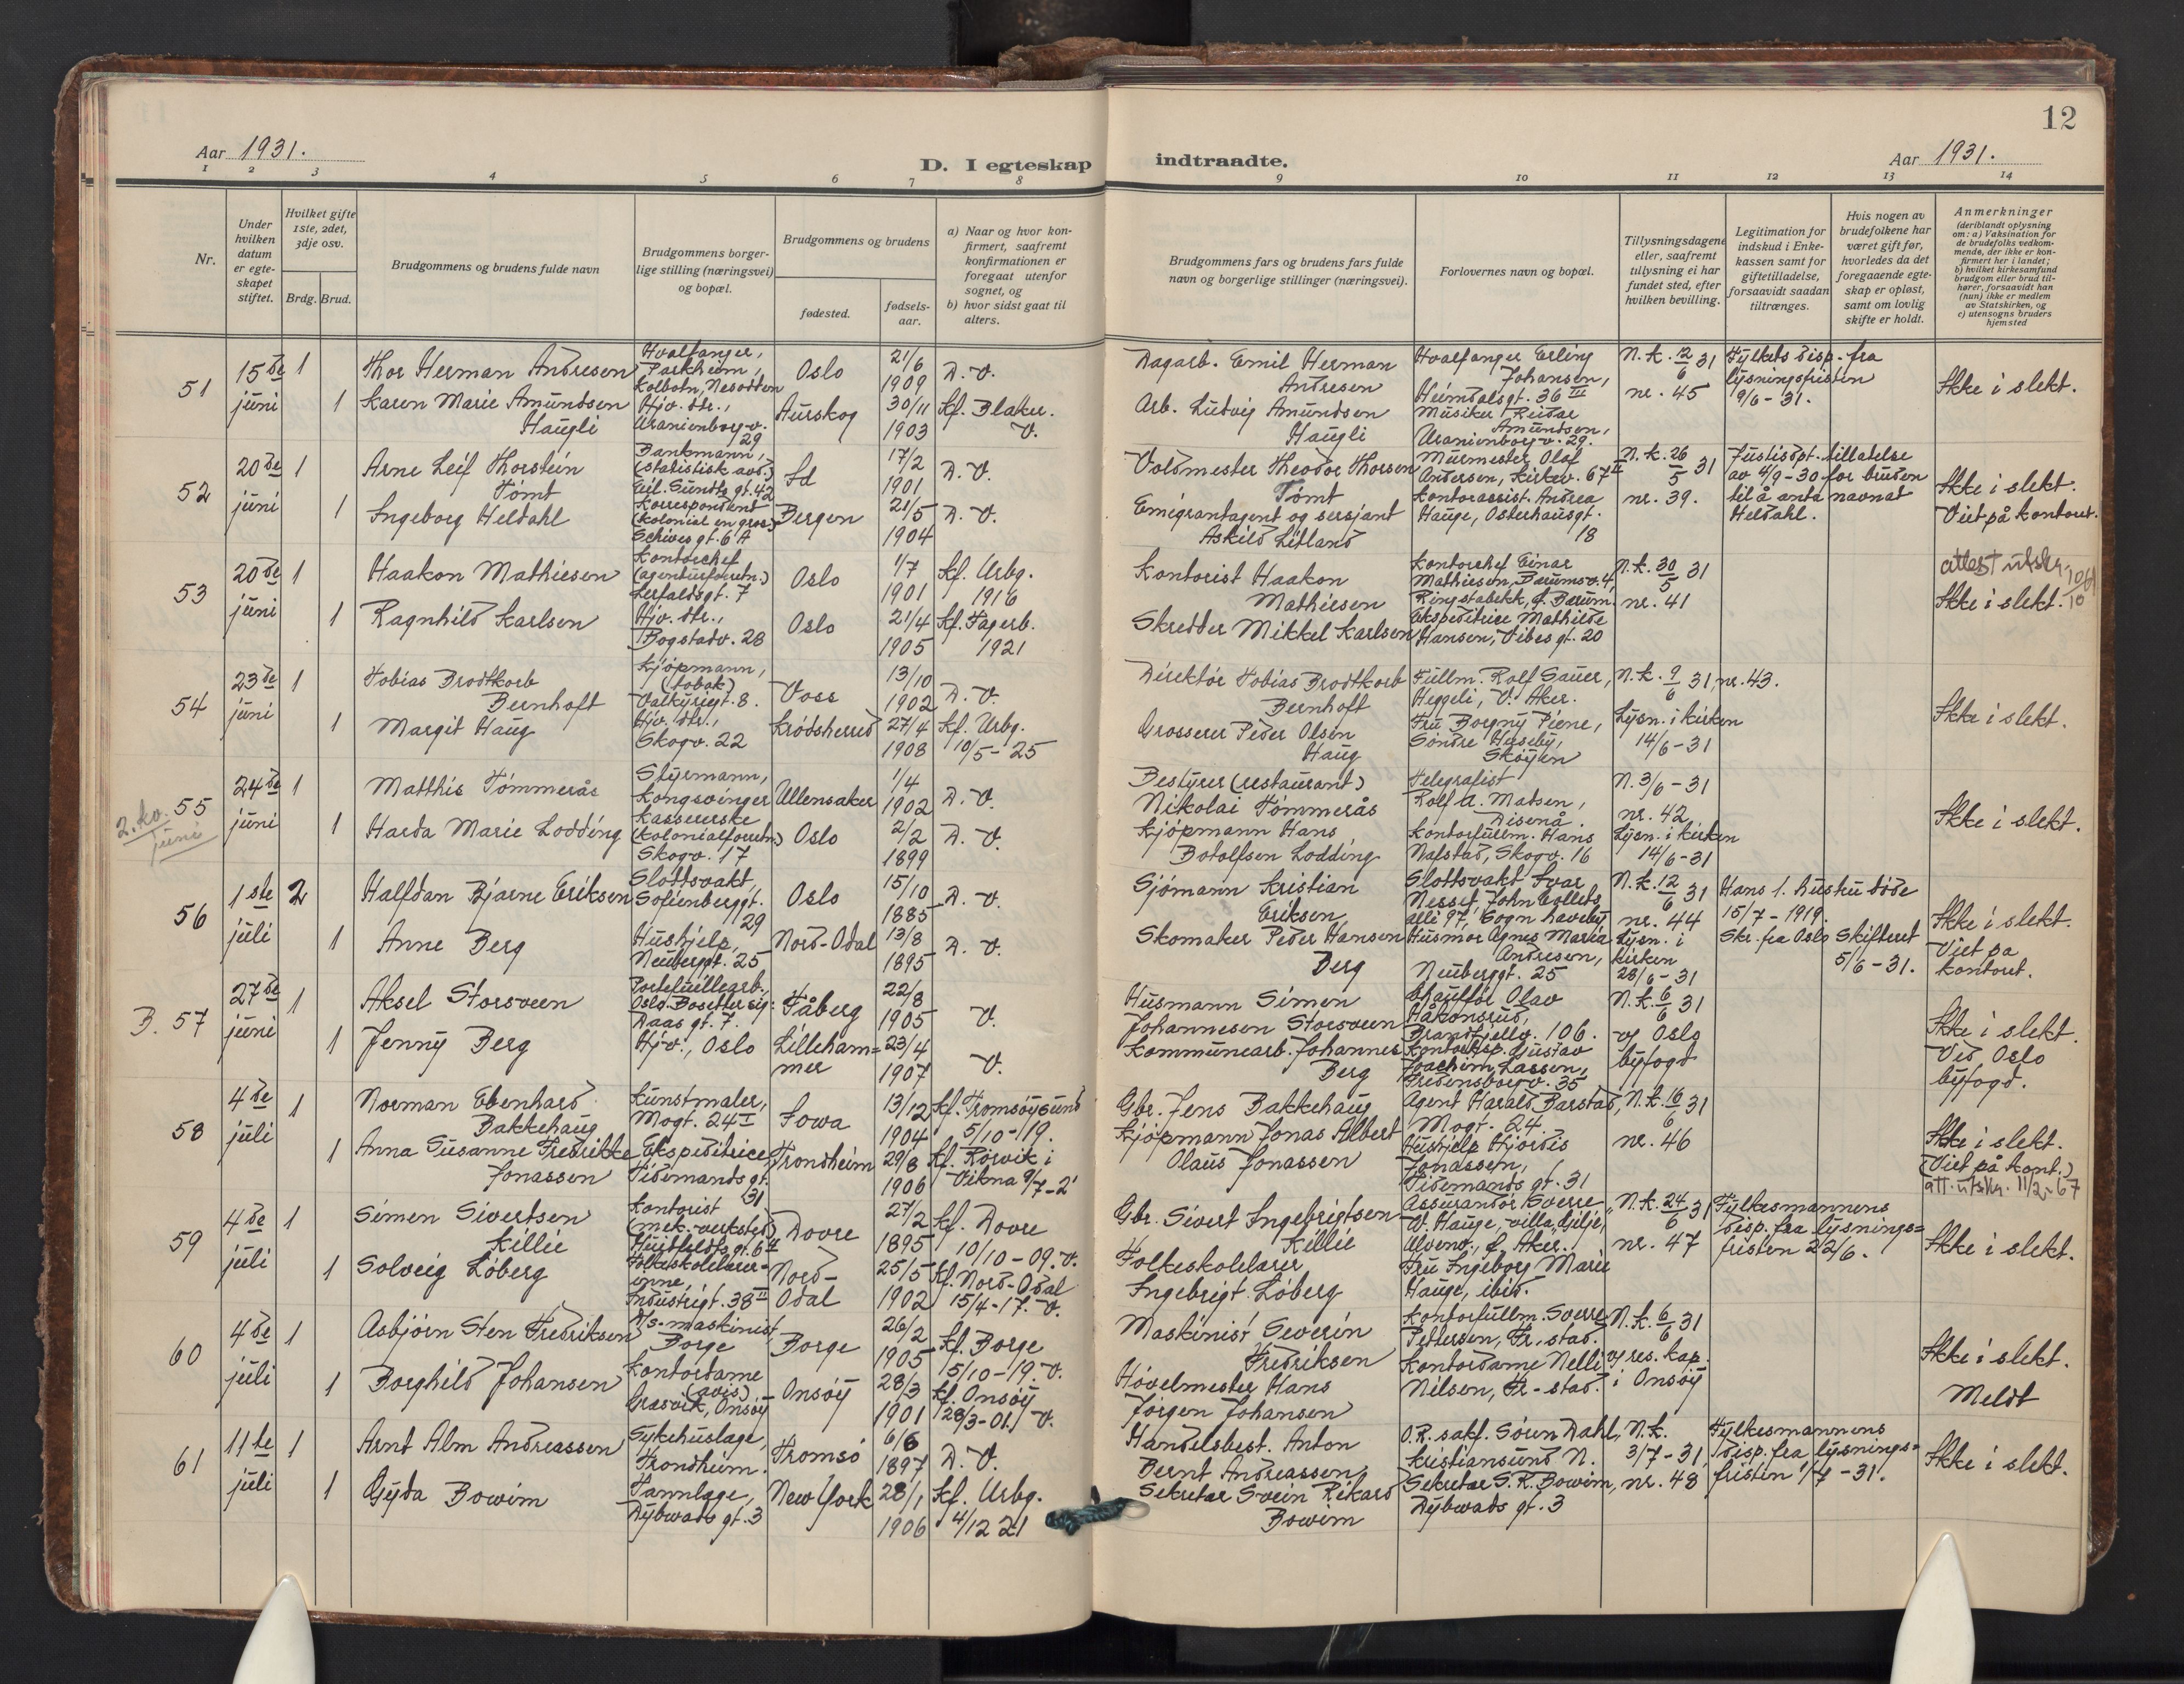 12
Aar 1931.
D. I egteskap indtraadte.
Aar 1931.
1 2 3 4 5 6 7 8 9 10 11 12 13 14
Nr.
Under hvilken datum er egte-skapet stiftet.
Hvilket gifte 1ste, 2det, 3dje osv.
Brdg. Brud.
Brudgommens og brudens fulde navn
Brudgommens borger-lige stilling (næringsvei) og bopæl.
Brudgommens og brudens
fødested.
fødsels-aar.
a) Naar og hvor kon-firmert, saafremt konfirmationen er foregaat utenfor sognet, og
b) hvor sidst gaat til alters.
Brudgommens fars og brudens fars fulde navn og borgerlige stillinger (næringsvei).
Forlovernes navn og bopæl.
Tillysningsdagene eller, saafremt tillysning ei har fundet sted, efter hvilken bevilling.
Legitimation for indskud i Enke-kassen samt for giftetilladelse, forsaavidt saadan tiltrænges.
Hvis nogen av brudefolkene har været gift før, hvorledes da det foregaaende egte-skap er opløst, samt om lovlig skifte er holdt.
Anmerkninger
(deriblandt oplysning om: a) Vaksination for de brudefolks vedkom-mende, der ikke er kon-firmert her i landet; b) hvilket kirkesamfund brudgom eller brud til-hører, forsaavidt han (hun) ikke er medlem av Statskirken, og c) utensogns bruders hjemsted
51
15de juni
1
Thor Herman Andresen
Hvalfanger, Parkheim, Kolbotn, Nesodden
Oslo
21/6 1909
D. V.
Dagarb. Emil Herman Andresen
Hvalfanger Erling Johansen, Heimdalsgt. 36 III
N. k. 12/6 31 nr. 45
Fylkets disp. fra lysningsfristen 9/6 - 31.
Ikke i slekt.
1
Karen Marie Amundsen Haugli
Hjv. dtr., Uranienborg v. 29
Aurskog
30/11 1903
Kf. Blaker. V.
Arb. Ludvig Amundsen Haugli
Musiker Reidar Amundsen, Uranienborg v. 29.
52
20de juni
1
Arne Leif Thorstein Tømt
Bankmann, (statistisk avd.) Eil. Sundts gt. 42
17/2 1901
D. V.
Voldmester Theodor Thorsen Tømt
Murmester Olaf Andersen, Kirkev. 67 II
N. k. 26/5 31 nr. 39.
Justisdpt. tillatelse av 4/9 - 30 for bruden til å anta navnet Heldahl.
Ikke i slekt.
Viet på kontoret.
1
Ingeborg Heldahl
Korrespondent (kolonial en gros) Schives gt. 6 A
Bergen
21/5 1904
D. V.
Emigrantagent og sersjant Askild Litland
Kontorassist. Andrea Hauge, Osterhausgt. 18
53
20de juni
1
Haakon Mathiesen
Kontorchef (agenturforretn.) Lefaldsgt. 7
Oslo
1/7 1901
Kf. Urbg. 1916
Kontorist Haakon Mathiesen
Kontorchef Einar Mathiesen, Bærumsv. 4, Ringstabekk, f. Bærum.
N. k. 30/5 31 nr. 41
attest utskr.
Ikke i slekt.
1
Ragnhild Karlsen
Hjv. dtr., Bogstadv. 28
Oslo
21/4 1905
Kf. Fagerb. 1921
Skredder Mikkel Karlsen
Ekspeditrice Mathilde Hansen, Vibes gt. 20
54
23de juni
1
Tobias Brodtkorb Bernhoft
Kjøpmann, (tobak) Valkyriegt. 8.
Voss
13/10 1902
D. V.
Direktør Tobias Brodtkorb Bernhoft
Fullm. Rolf Sauer, Heggeli, V. Aker.
N. k. 9/6 31, nr. 43.
Lysn. i kirken 14/6 - 31
Ikke i slekt.
1
Margit Haug
Hjv. dtr., Skogv. 22
Krødsherred
27/4 1908
Kf. Urbg. 10/5 - 25
Grosserer Peder Olsen Haug
Fru Borgny Piene, Søndre Huseby, Skøyen
2. kv. juni
55
24de juni
1
Matthis Tømmerås
Styrmann, Kongsvinger
Ullensaker
1/4 1902
D. V.
Bestyrer (restaurant) Nikolai Tømmerås
Telegrafist Rolf A. Matsen, Disenå.
N. 3/6 - 31 nr. 42
Lysn. i kirken 14/6 - 31
Ikke i slekt.
1
Harda Marie Lodding
Kassererske (kolonialforretn.) Skogv. 17
Oslo
2/2 1899
D. V.
Kjøpmann Hans Botolfsen Lodding
Kontorfullm. Hans Nafstad, Skogv. 16
56
1ste juli
2
Halfdan Bjarne Eriksen
Slottsvakt, Sofienberggt. 29
Oslo
15/10 1885
D. V.
Sjømann Kristian Eriksen
Slottsvakt Ivar Nesset, John Collets alle 97, Sogn haveby
N. k. 12/6 31 nr. 44
Lysn. i kirken 28/6 - 31
Hans 1. hustru døde 15/7 - 1919.
Skr. fra Oslo Skifteret 5/6 - 31.
Ikke i slekt.
Viet på kontoret.
1
Anne Berg
Hushjelp, Neuberggt. 25
Nord-Odal
13/8 1895
D. V.
Skomaker Peder Hansen Berg
Husmor Agnes Maria Andresen, Neuberggt. 25
B. 57
27de juni
1
Aksel Storsveen
Portefuillearb., Oslo. Bosetter sig: Daas gt. 7.
Fåberg
22/8 1905
V.
Husmann Simen Johannesen Storsveen
Chauffør Olav Håkonsrud, Brandfjellv. 106.
N. k. 6/6 31 v/ Oslo byfogd
Ikke i slekt.
Vid Oslo byfogd.
1
Jenny Berg
Hjv., Oslo
Lilleham=mer
23/4 1907
V.
Kommunearb. Johannes Berg
Kontorksp. Gustav Joachim Lassen, Fredensborgv. 35
58
4de juli
1
Norman Ebenhard Bakkehaug
Kunstmaler, Mogt. 24 I
Iowa
13/12 1904
Kf. Tromsøysund 5/10 - 19.
Gbr. Jens Bakkehaug
Agent Harald Barstad, Mogt. 24.
N. k. 16/6 31 nr. 46
Ikke i slekt.
(Viet på kont.)
att. utskr. 11/2 - 67
1
Anna Susanne Fredrikke Jonassen
Ekspeditrice, Tidemands gt. 31
Trondheim
29/8 1906
Kf. Rørvik i Vikna 9/7 - 2'
Kjøpmann Jonas Albert Olaus Jonassen
Hushjelp Hjørdis Jonassen, Tidemands gt. 31
59
4de juli
1
Simen Sivertsen Killie
Kontorist (mek. verksted) Huitfeldts gt. 6 4
Dovre
27/2 1895
Kf. Dovre 10/10 - 09. V.
Gbr. Sivert Ingebrigtsen Killie
Assurandør Sverre W. Hauge, villa "Gilje," Ulvenv., f. Aker.
N. k. 24/6 31 nr. 47
Fylkesmannens disp. fra lysnings=fristen 22/6.
Ikke i slekt.
1
Solveig Løberg
Folkeskolelærer=inne, Industrigt. 38 II
Nord-Odal
25/5 1902
Kf. Nord-Odal 15/4 - 17. V.
Folkeskolelærer Ingebrigt Løberg
Fru Ingeborg Marie Hauge, ibid.
60
4de juli
1
Asbjørn Sten Fredriksen
D/s-maskinist, Borge
Borge
26/2 1905
Kf. Borge 5/10 - 19. V.
Maskinist Severin Fredriksen
Kontorfullm. Sverre Pettersen, Fr.stad.
N. k. 6/6 31 v/ res. kap. i Onsøy
Ikke i slekt.
Meldt
1
Borghild Johansen
Kontordame (avis), Græsvik, Onsøy
Onsøy
28/3 1901
Kf. Onsøy 28/3 - 01. V.
Høvelmester Hans Jørgen Johansen
Kontordame Nelli Nilsen, Fr-stad.
61
11te juli
1
Arnt Alm Andreassen
Sykehuslæge, Trondheim.
Tromsø
6/6 1897
D. V.
Handelsbest. Anton Bernt Andreassen
O.R. sakf. Søren Dahl, Kristiansund N.
N. k. 3/7 - 31, nr. 48
Fylkesmannens disp. fra lysnings=fristen 1/7 - 31.
Ikke i slekt.
1
Gyda Bowim
Tannlæge, Dybwads gt. 3
New York
28/1 1906
Kf. Urbg. 4/12 21
Sekretær Svein Rikard Bowim
Sekretær S. R. Bowim, Dybwads gt. 3